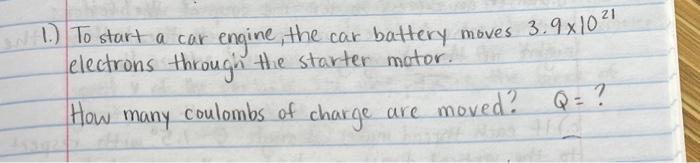 1.) To start a car engine, the car battery moves 3.9x10²¹
electrons through the starter motor.
How many coulombs of charge are moved? Q = ?